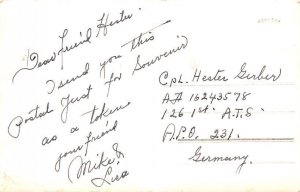 Dear friend Hester.
I send you this
Postal Just for Souvenir
as a token
your friend
Mike &
Lisa
Cpl. Hester Gerber
A# 16243578
126 1st A.T.S.
A.P.O. 231.
Germany.